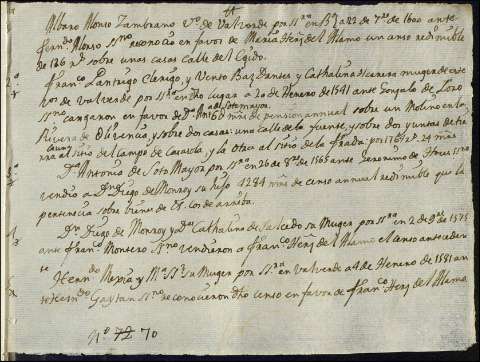 Albaro Alonso Zambrano vº de Valverde por ssra en Bª a 22 de 7re de 1600 ante
ferndo Alonso ssno reconocio en favor de Maria Herz del Alamo un censo redimible
de 126 rs sobre unas casas Calle del Egido.
Franco Lantrigo Clerigo, y Vento Baz Danses y Cathalina Herrera muger de este
vos de valverde por ssra en dho lugar a 20 de Henero de 1541 ante Gonzalo de
ssno cargaron en favor de Dn de pension annual sobre un Molino en la
Rivera de Olivencia, y sobre dos casas: una calle de la fuente, y sobre dos yuntas de tie
rra al sitio del Campo de y la otra al sitio de la
Dn Antonio de Soto Mayor por ssra en 26 de 8re de 1565 ante Geronimo de ssno
vendio a Dn Diego de Monroy su hijo 4284 mrs de censo annual redimible que la
pertenecia sobre bienes de el Co de arriba.
Dn Diego de Monroy y Da Cathalina de Salcedo su Muger por ssra en 2 de de 1575
ante Franco Montero ssno vendieron a Franco Herz del Alamo el censo anteceden
te
Herndo Mexia y Ma su Muger por ssra en valverde a 4 de Henero de 1581 an
te Herndo Gaytan ssno reconocieron dho censo en favor de Franco Herz del Alamo
Nº 72 70